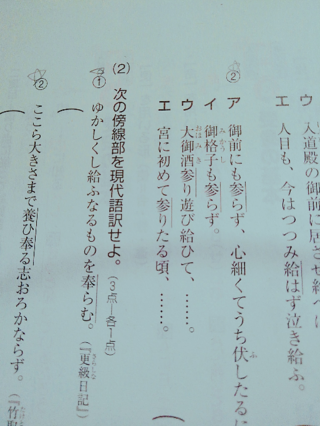 ウ 入道殿の御前に居させ給へ
エ 人目も、今はつつみ給はず泣き給ふ。
②
ア 御前にも参らず、心細くてうち伏したるに
イ 御格子も参らず。
ウ 大御酒参り遊び給ひて、……。
エ 宮に初めて参りたる頃、……。
(2) 次の傍線部を現代語訳せよ。(3点―各1点)
① ゆかしくし給ふなるものを奉らむ。(『更級日記』)
② ここら大きさまで養ひ奉る志おろかならず。(『竹取